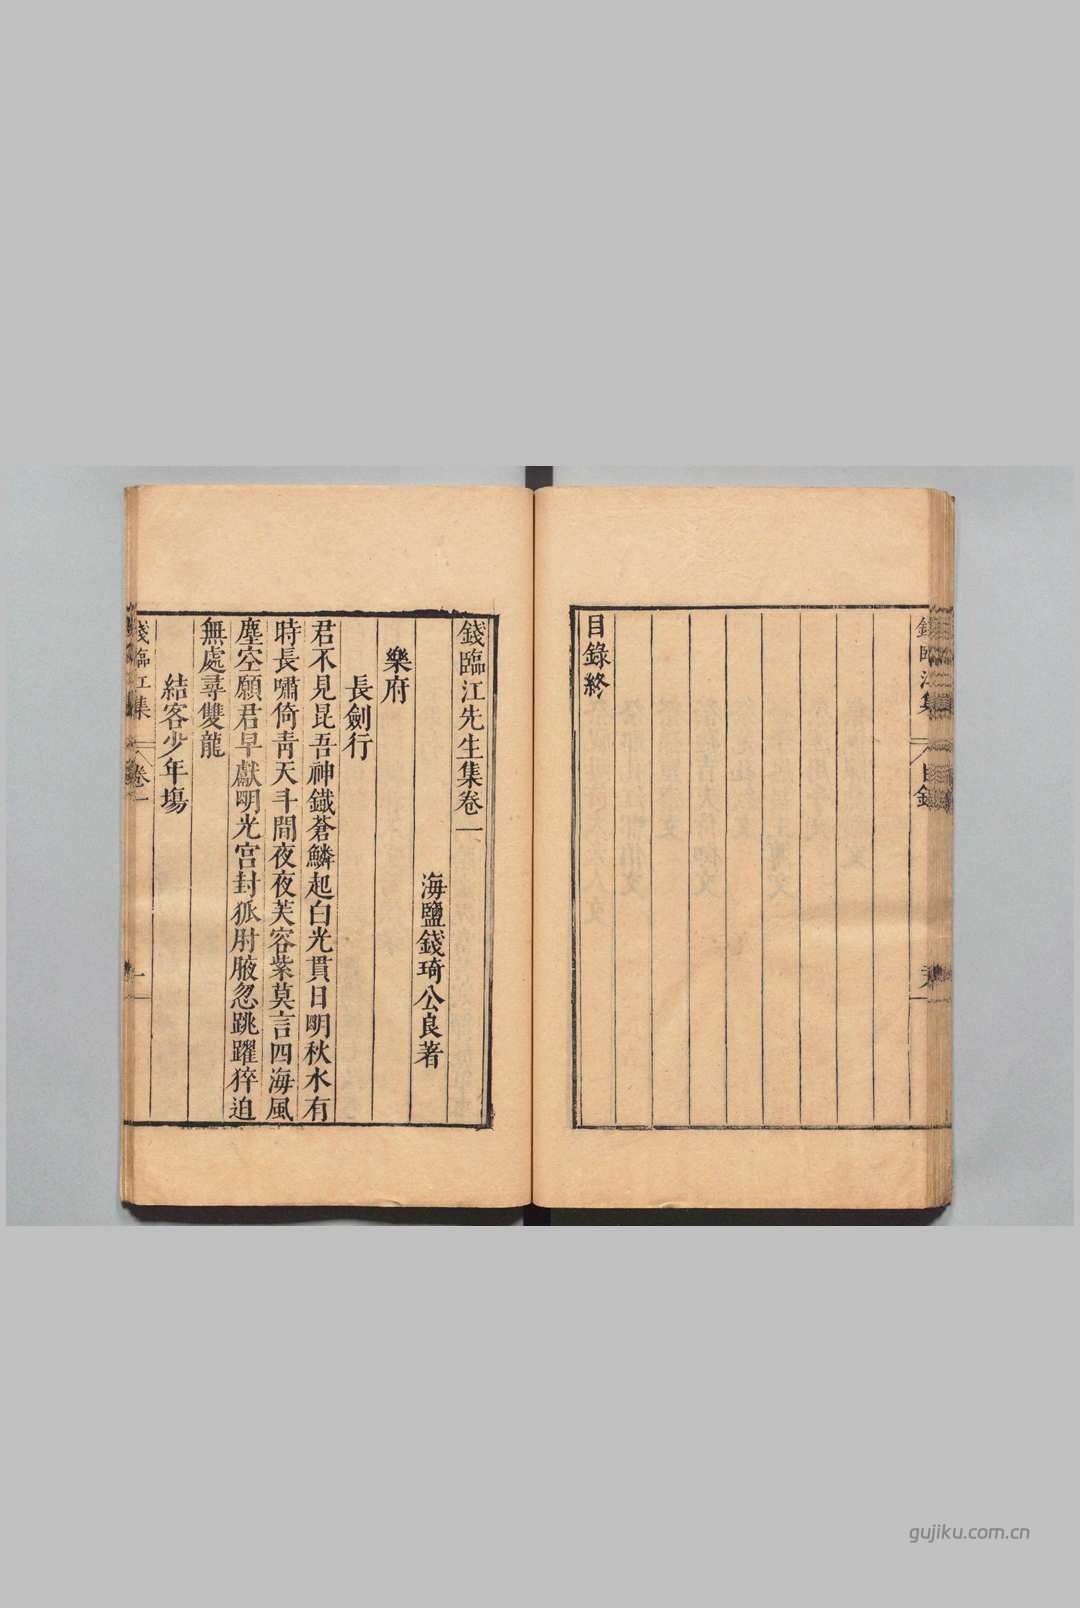 目錄終
錢臨江集
目錄
錢臨江先生集卷一
海鹽錢琦公良著
樂府
長劍行
君不見昆吾神鐵蒼鱗起白光貫日明秋水有
時長嘯倚青天斗間夜夜芙容紫莫言四海風
塵空願君早獻明光宮封狐肘腋忽跳躍猝迫
無處尋雙龍
結客少年塲
錢臨江集
卷一
一
gujiku.com.cn